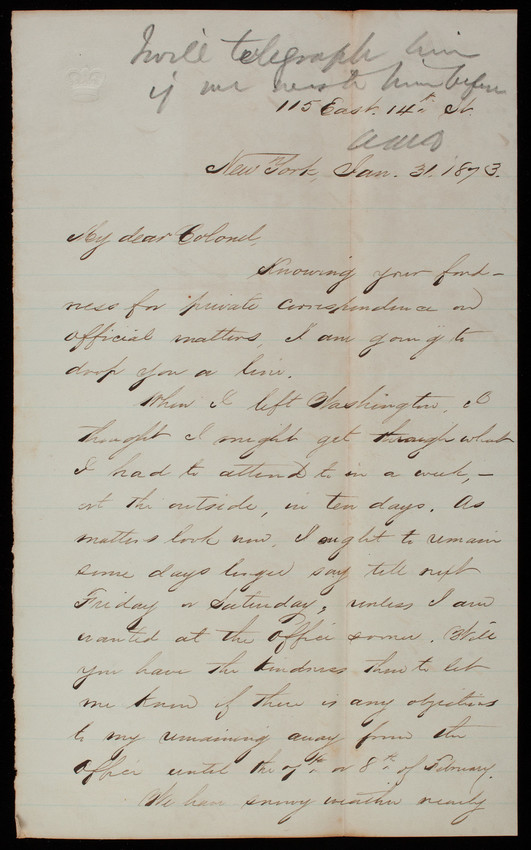 I will telegraph him
if we want him before
115 East. 14th St.
New York, Jan. 31. 1873.
My dear Colonel,
Knowing your fond-
ness for private correspondence on
official matters, I am going to
drop you a line.
When I left Washington, I
thought I might get through what
I had to attend to in a week,-
at the outside, in ten days. As
matters look now, I ought to remain
some days longer say till next
Friday or Saturday, unless I am
wanted at the Office sooner. Will
you have the kindness then to let
me know if there is any objection
to my remaining away from the
Office until the 7th or 8th of February.
We have snowy weather nearly